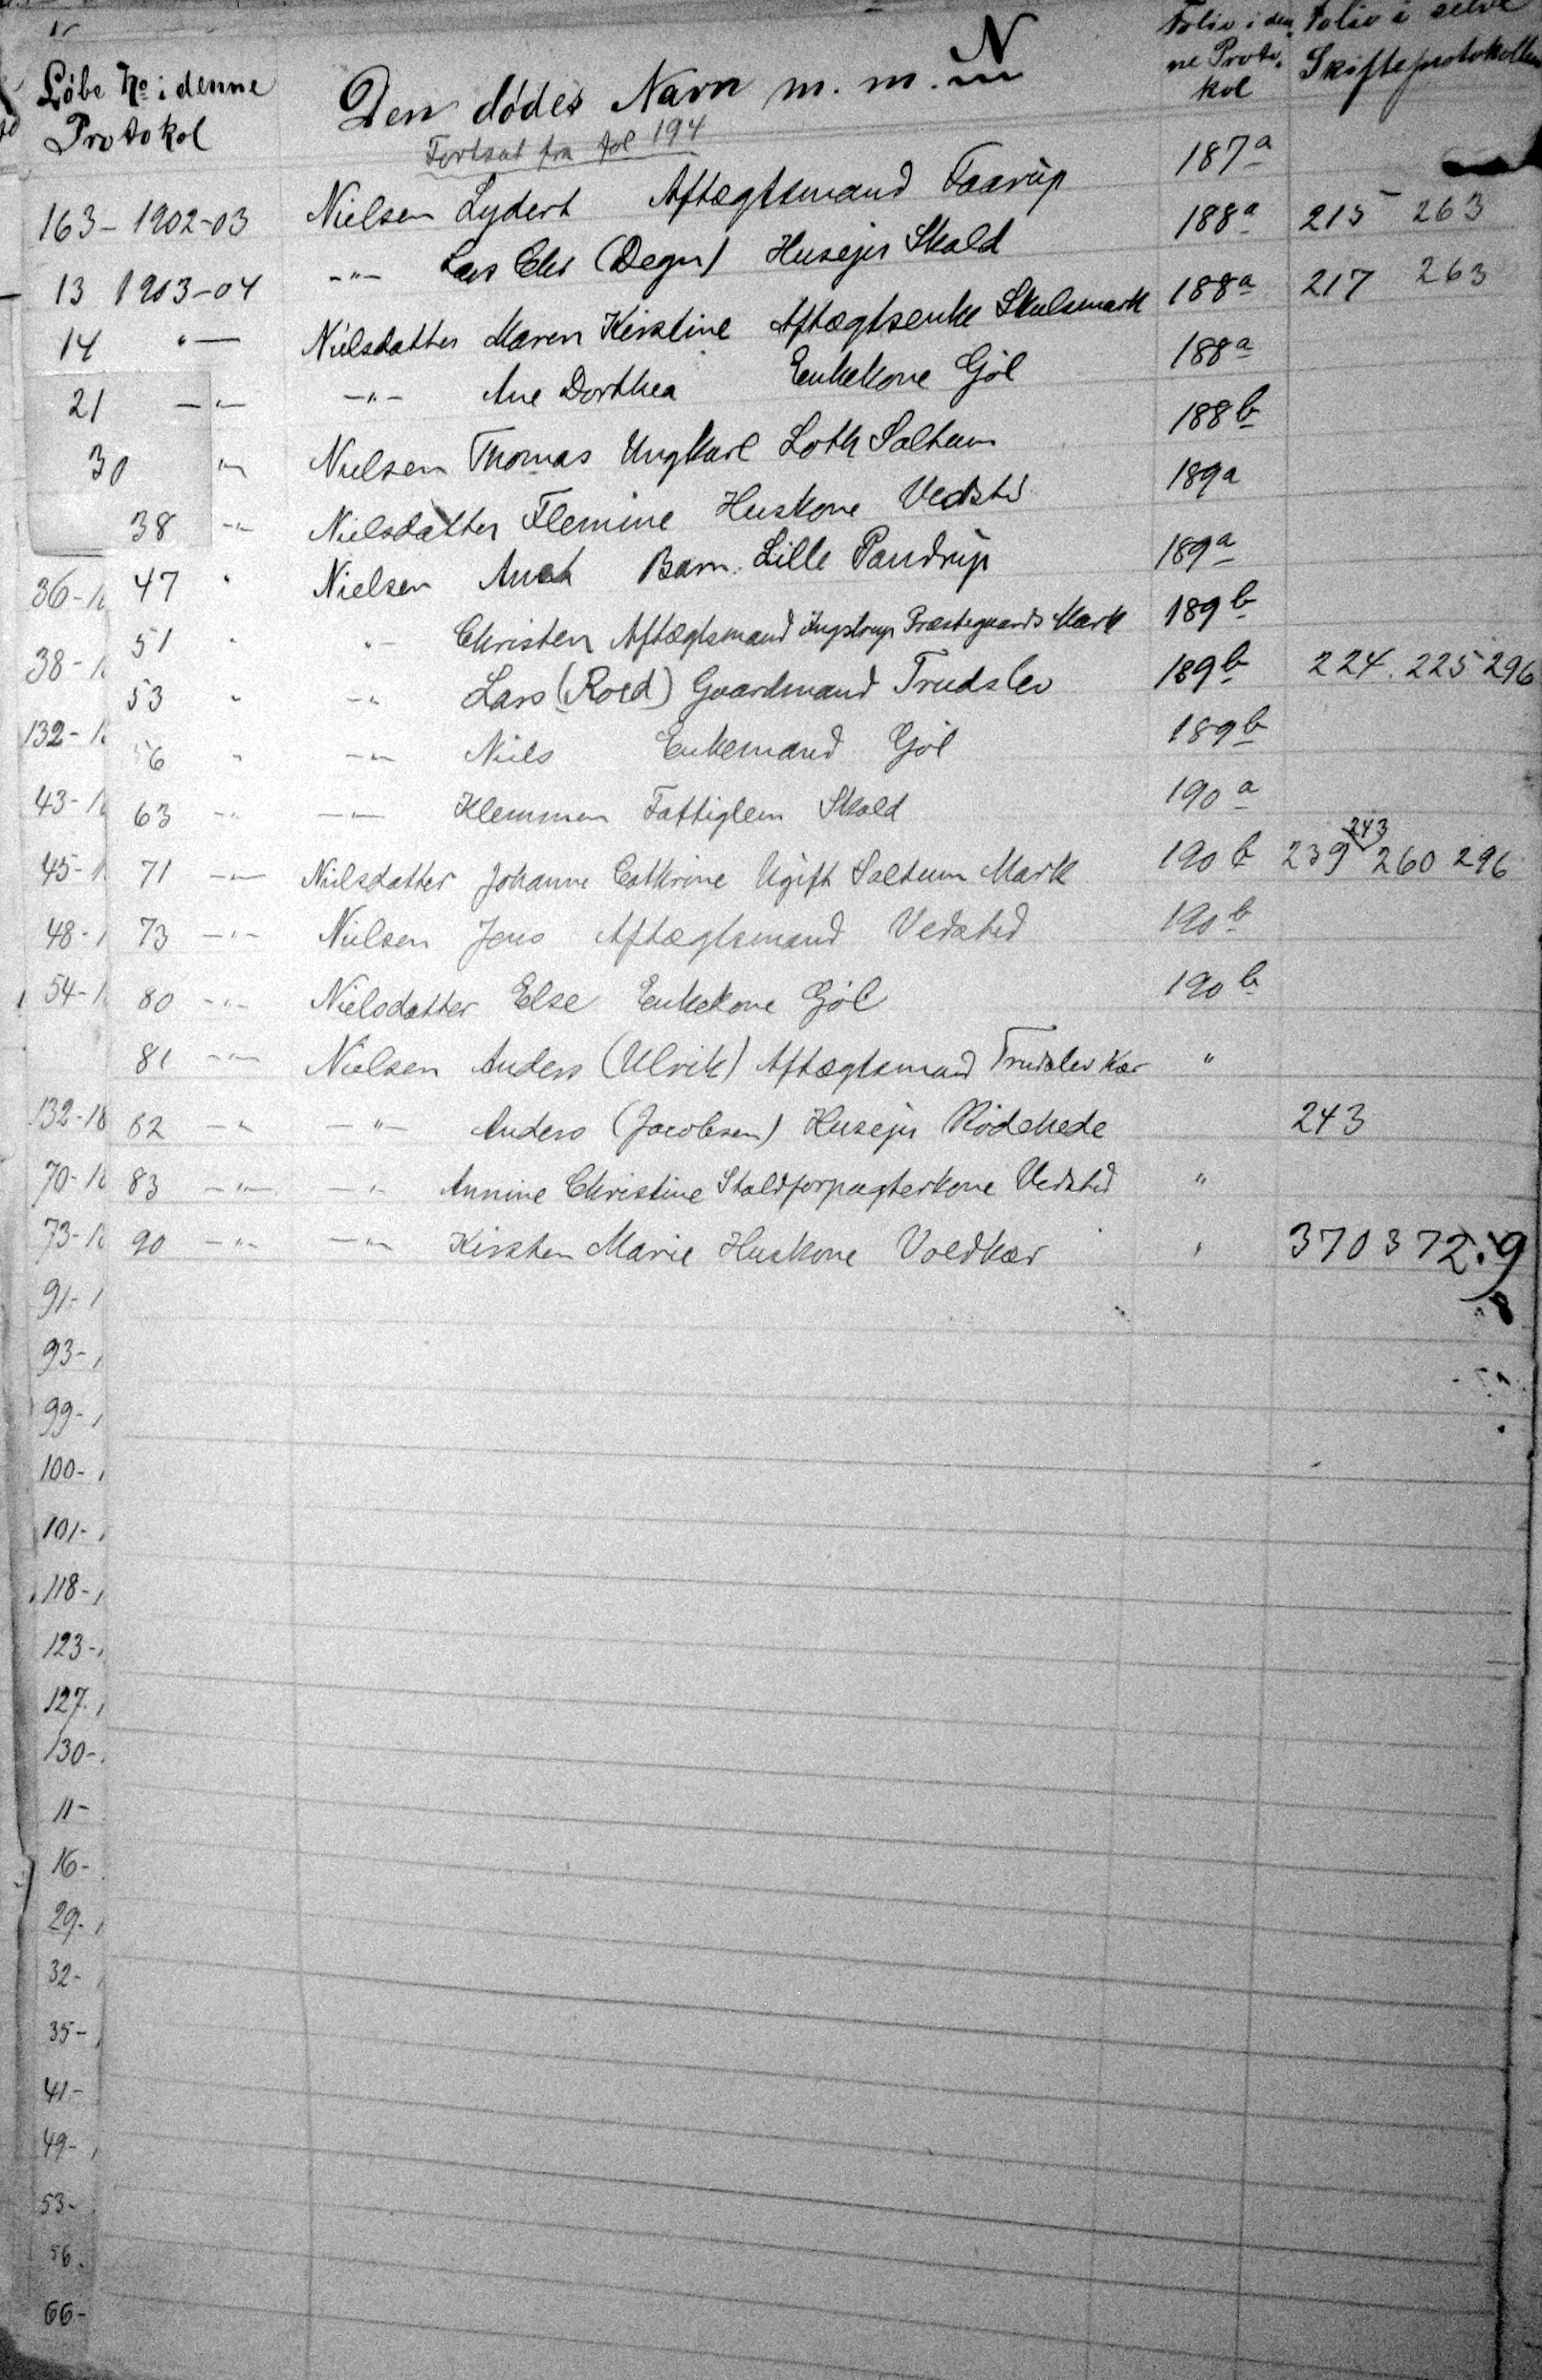 N
Løbe No i denne Protokol
Den dødes Navn m. m.
Folio i denne Protokol
Folio i selve Skifteprotokollen
Fortsat fra fol 194
163 - 1902-03 Nielsen Lydert Aftægtsmand Faarup 187a
13 1903-04 -"- Lars Chr (Degn) Husejer Skald 188a 215 263
14 "- Nielsdatter Maren Kirstine Aftægtsenke Skulsmark 188a 217 263
21 -"- -"- Ane Dorthea Enkekone Gjøl 188a
30 -"- Nielsen Thomas Ungkarl Loth Saltum 188b
38 -"- Nielsdatter Flemine Huskone Vedsted 189a
36- 47 " Nielsen Barn Lille Pandrup 189a
51 " "- Christen Aftægtsmand Ingstrup Præstegaards Mark 189b
38- 53 " -"- Lars (Roed) Gaardmand Trudslev 189b 224. 225 296
132- 56 " -"- Niels Enkemand Gjøl 189b
43- 63 -"- -"- Klemmen Fattiglem Skald 190a
45- 71 -"- Nielsdatter Johanne Cathrine Ugift Saltum Mark 190b 239 243 260 296
48- 73 -"- Nielsen Jens Aftægtsmand Vedsted 190b
54- 80 -"- Nielsdatter Else Enkekone Gjøl 190b
81 -"- Nielsen Anders (Ulrik) Aftægtsmand Trudslev Kær "
132-18 82 -"- -"- Anders (Jacobsen) Husejer Rødehede 243
70-18 83 -"- -"- Annine Christine Staldforpagterkone Vedsted "
73-18 90 -"- -"- Kirsten Marie Huskone Voldkær " 370 372
91-
93-
99-
100-
101-
118-
123-
127
130-
11-
16-
29-
32-
35-
41-
49-
53-
56-
66-